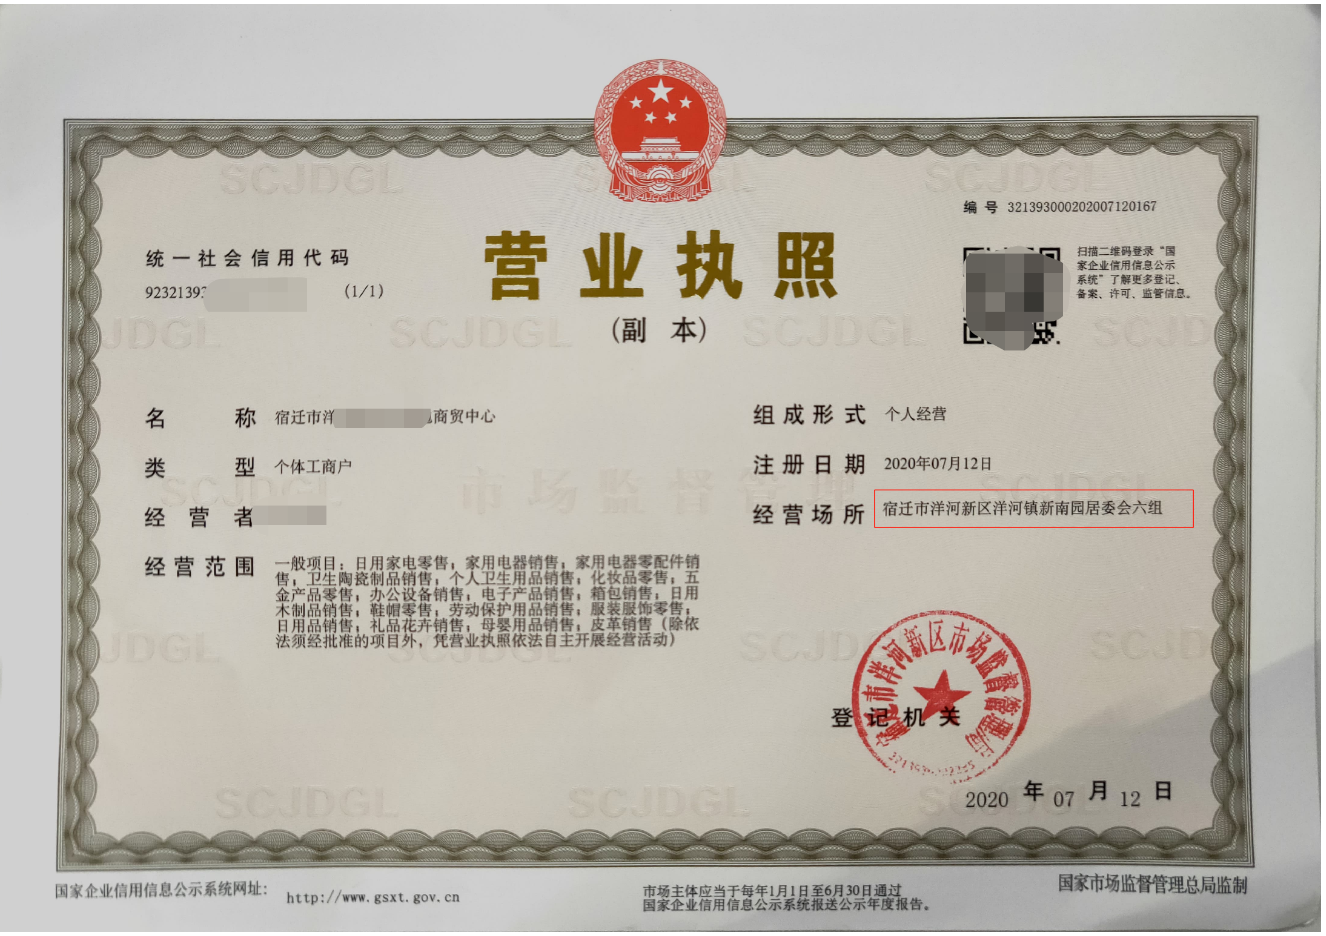 编号 321393000202007120167
统一社会信用代码
92321393
(1/1)
营业执照
(副 本)
扫描二维码登录“国
家企业信用信息公示
系统”了解更多登记、
备案、许可、监管信息。
名 称 宿迁市洋 商贸中心
类 型 个体工商户
经 营 者
经营范围 一般项目：日用家电零售；家用电器销售；家用电器零配件销
售；卫生陶瓷制品销售；个人卫生用品销售；化妆品零售；五
金产品零售；办公设备销售；电子产品销售；箱包销售；日用
木制品销售；鞋帽零售；劳动保护用品销售；服装服饰零售；
日用品销售；礼品花卉销售；母婴用品销售；皮革销售（除依
法须经批准的项目外，凭营业执照依法自主开展经营活动）
组成形式 个人经营
注册日期 2020年07月12日
经营场所 宿迁市洋河新区洋河镇新南园居委会六组
登记机关
宿迁市洋河新区市场监督管理局
2020 年 07 月 12 日
国家企业信用信息公示系统网址：
http://www.gsxt.gov.cn
市场主体应当于每年1月1日至6月30日通过
国家企业信用信息公示系统报送公示年度报告。
国家市场监督管理总局监制
SCJDGL
市场监督管理